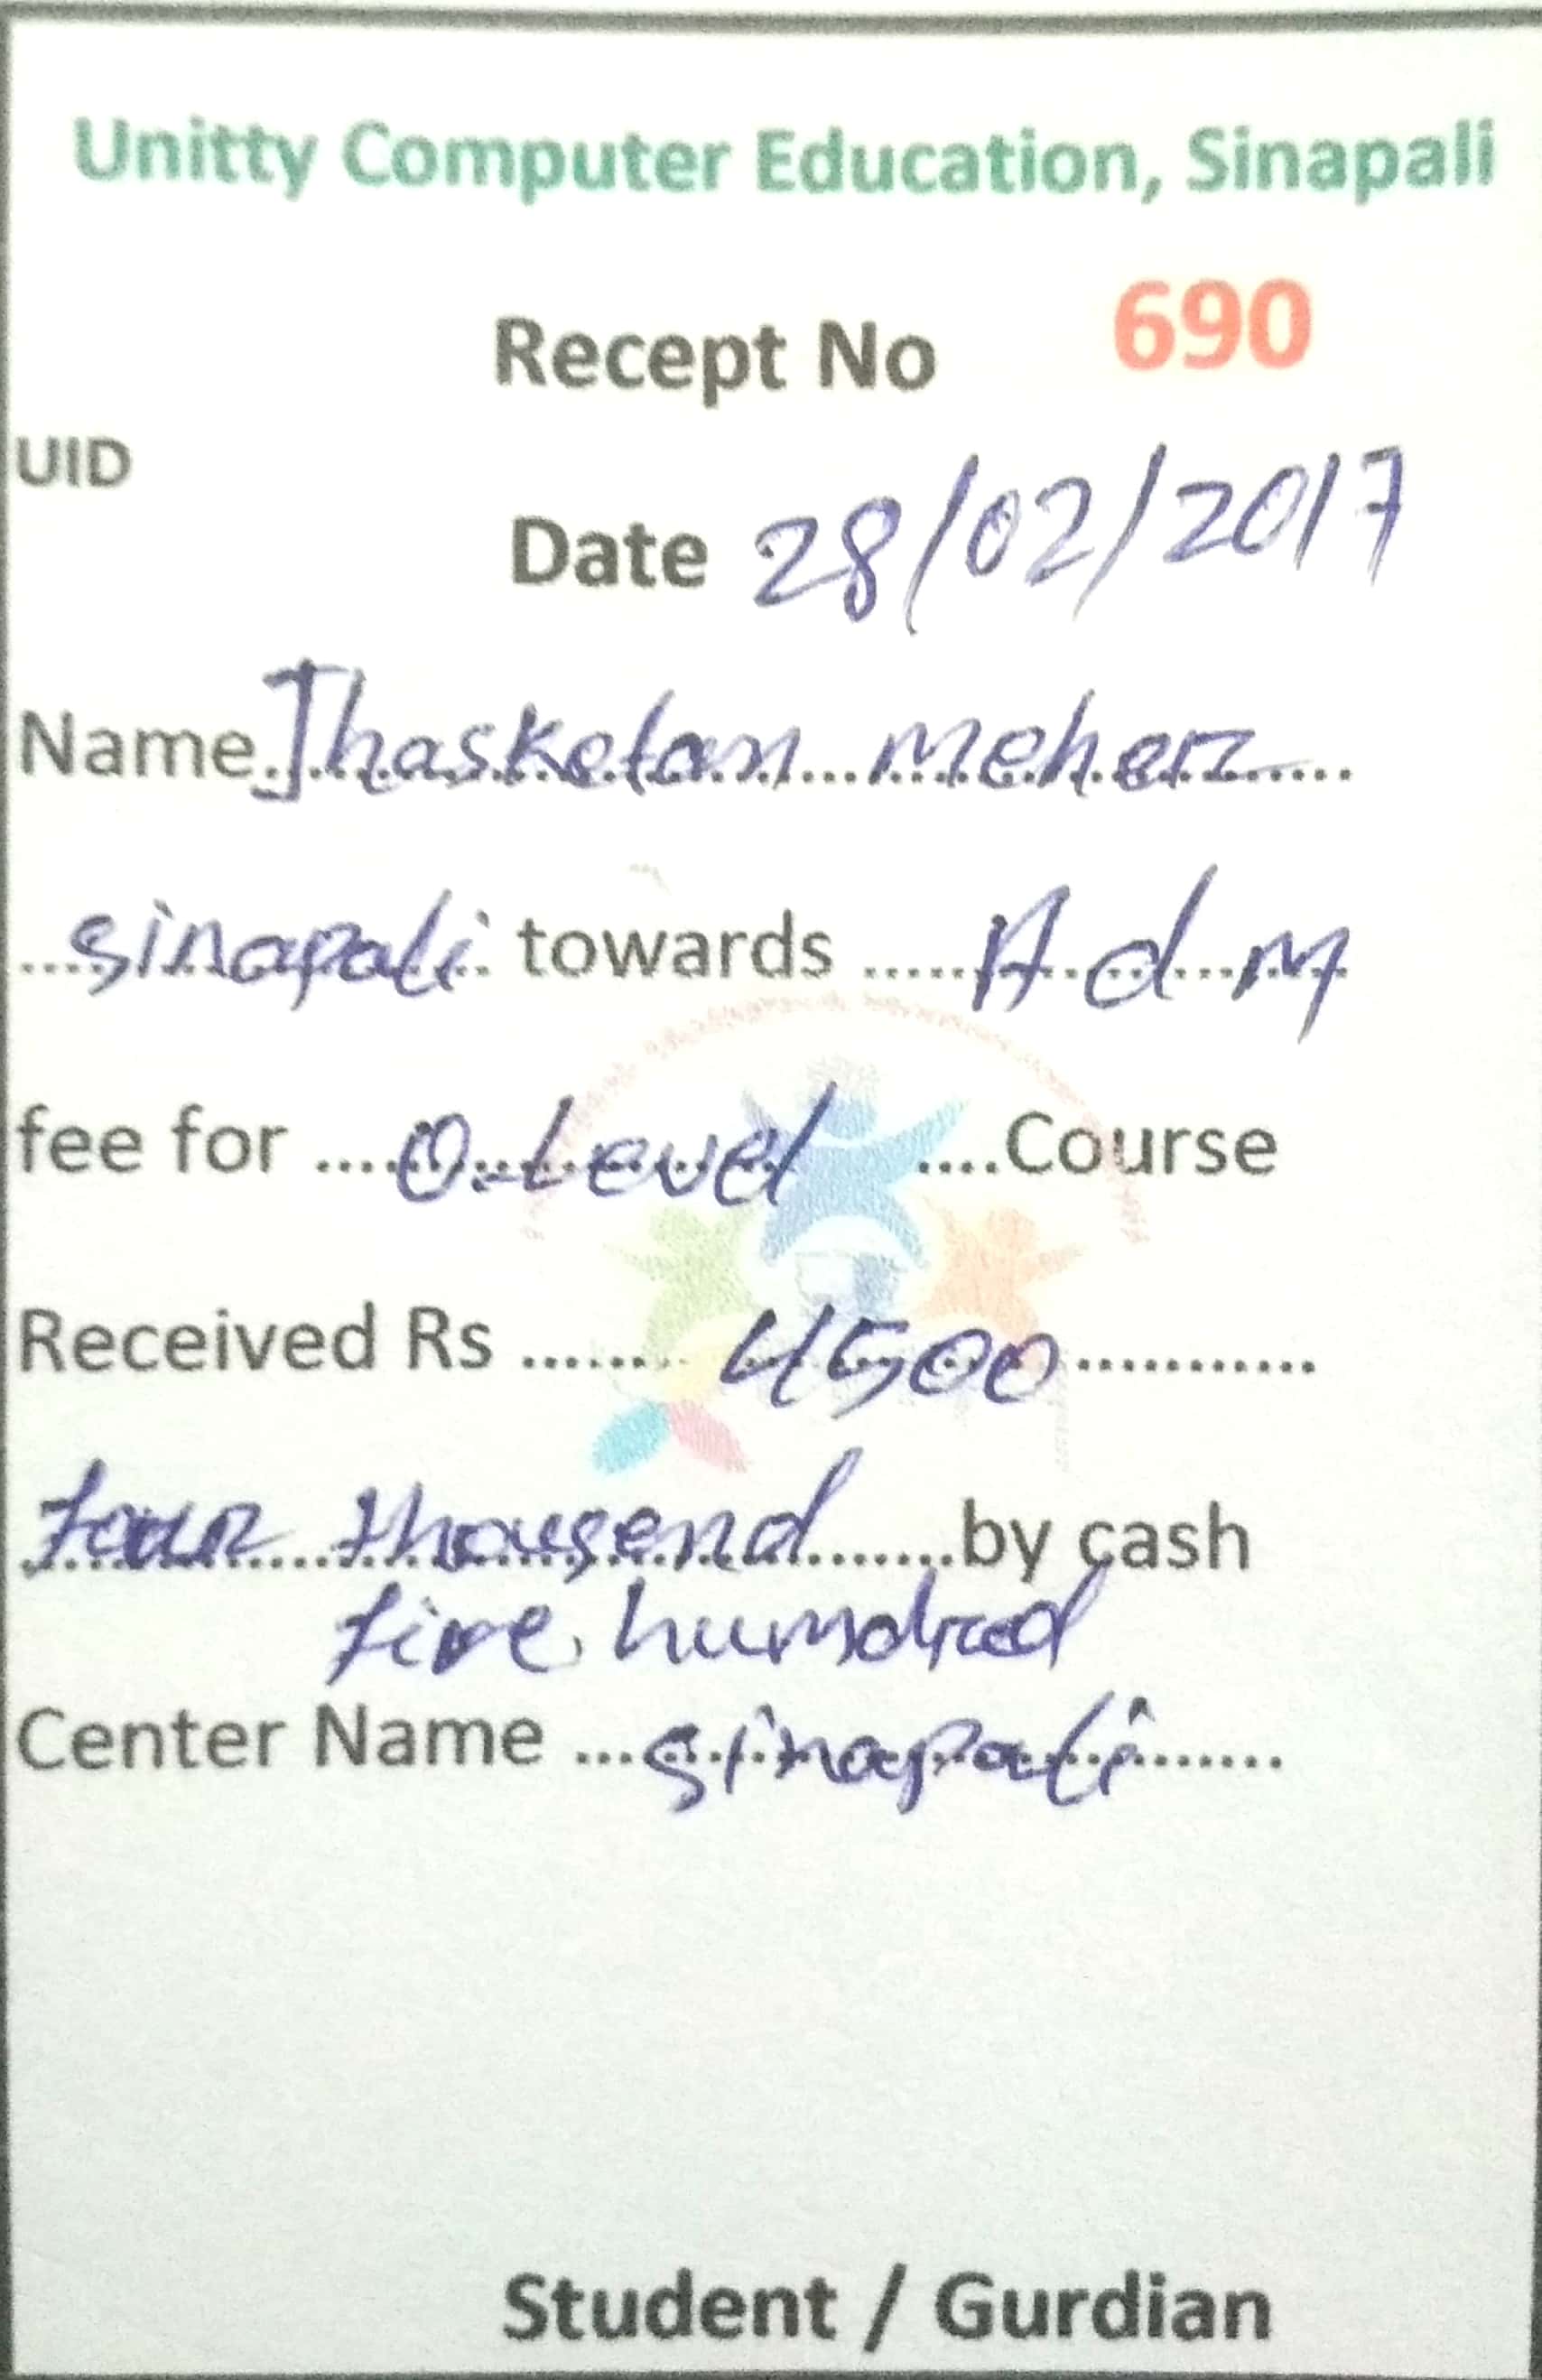 Unitty Computer Education, Sinapali
Recept No 690
UID
Date 28/02/2017
Name Jhasketan meher
sinapali towards Adm
fee for O.Level Course
Received Rs 4500
four thousend by cash
five humdred
Center Name sinapali
Student / Gurdian